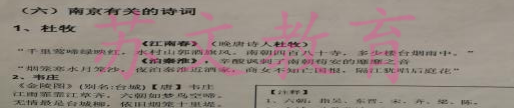 （六）南京有关的诗词
1、杜牧
《江南春》（晚唐诗人杜牧）
“千里莺啼绿映红，水村山郭酒旗风。南朝四百八十寺，多少楼台烟雨中。”
《泊秦淮》，辛酸讽刺了南朝苟安的靡靡之音
“烟笼寒水月笼沙，夜泊秦淮近酒家。商女不知亡国恨，隔江犹唱后庭花”
2、韦庄
《金陵图》（别名:台城）【唐】韦庄
江雨霏霏江草齐，六朝如梦鸟空啼。
无情最是台城柳，依旧烟笼十里堤。
【注释】
1、六朝：指吴、东晋、宋、齐、梁、陈。
苏文教育